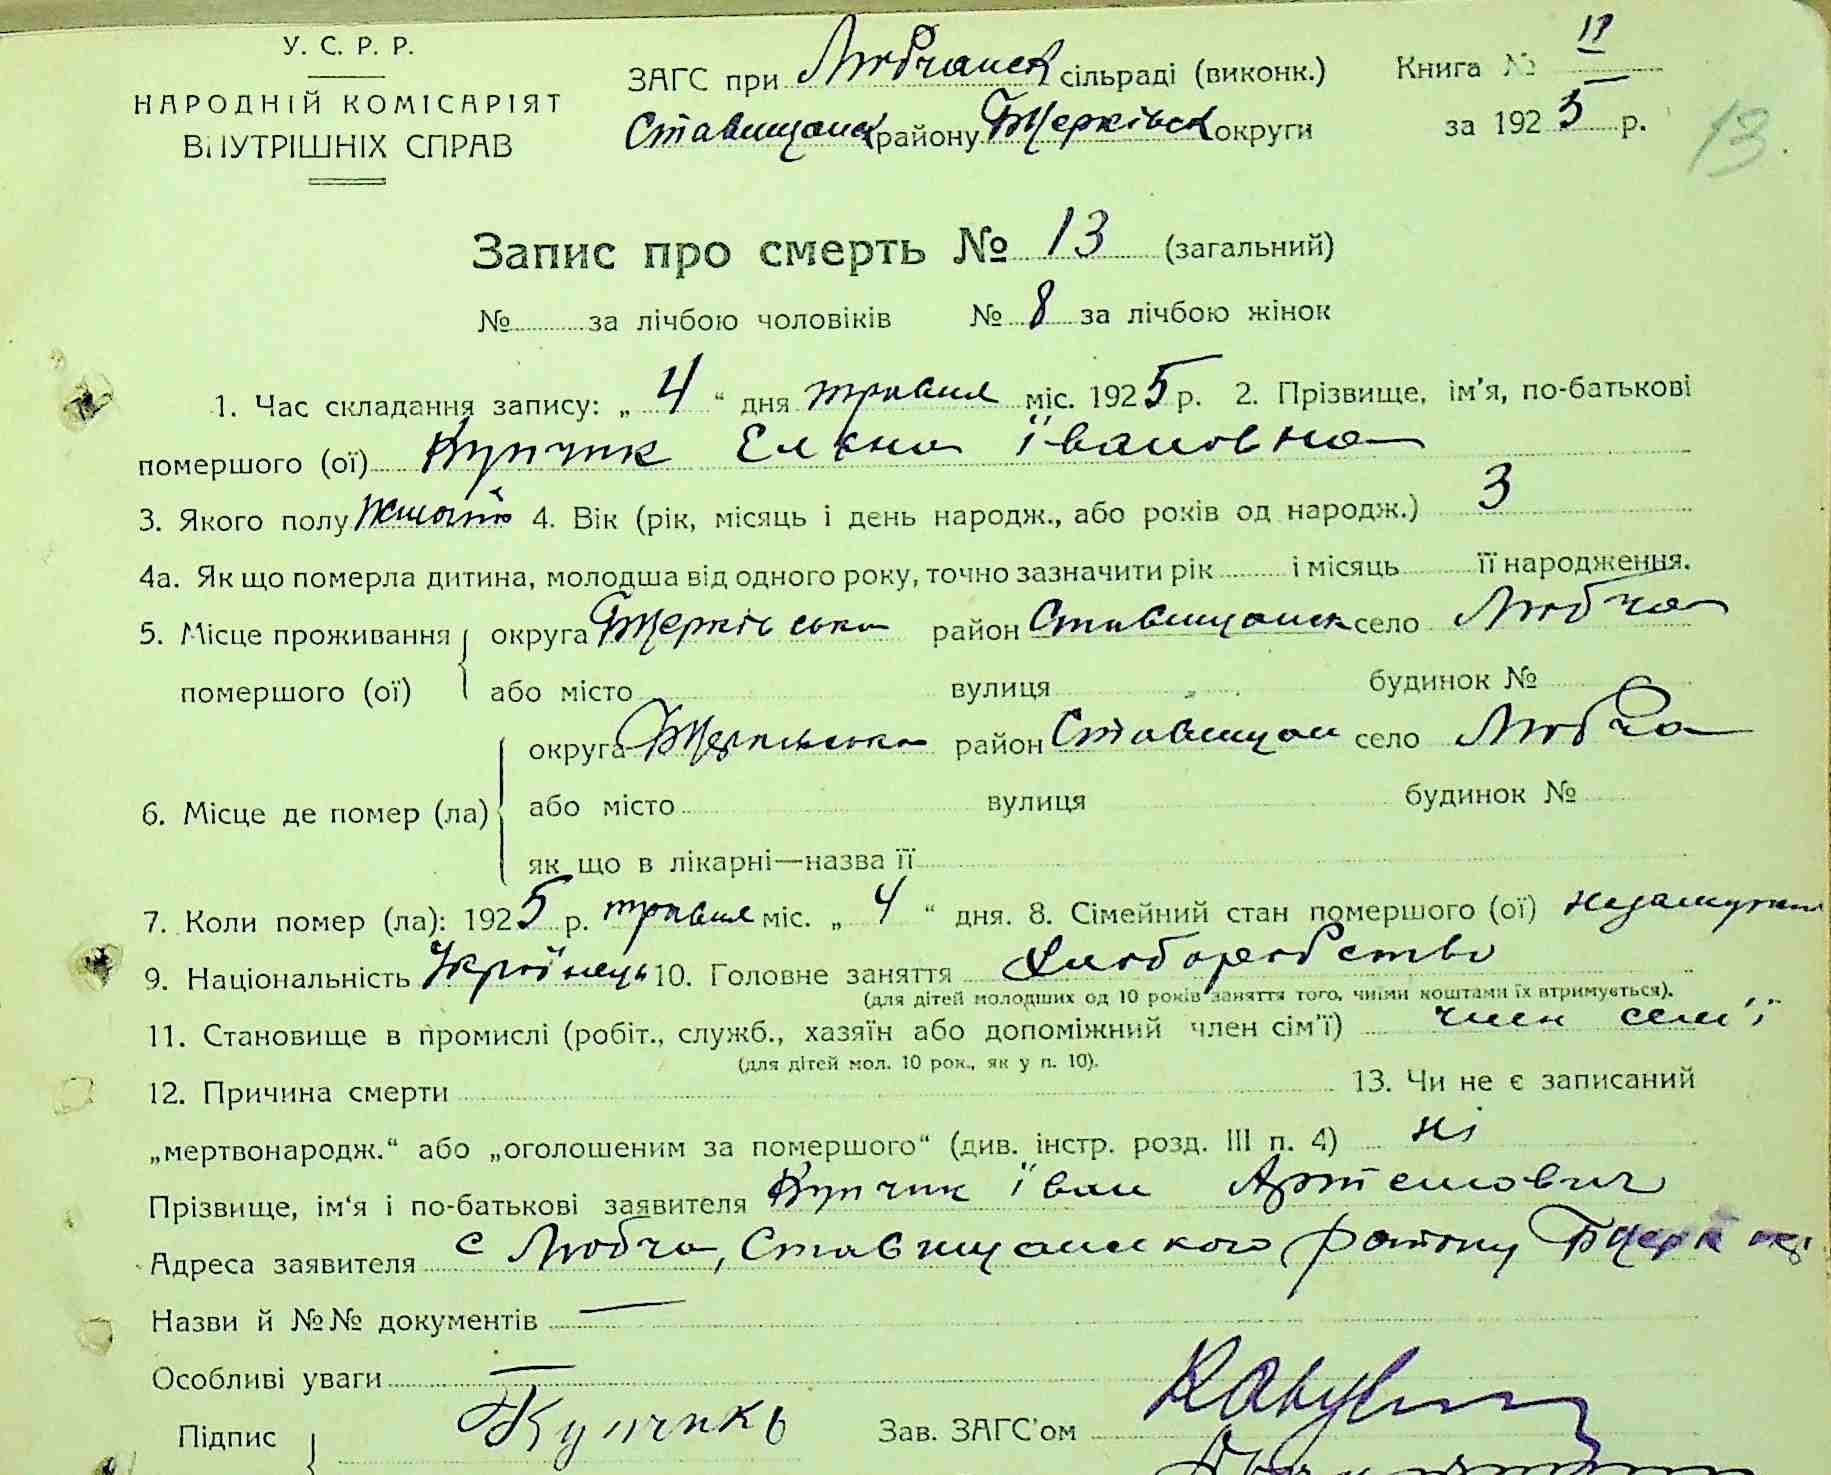 У. С. Р. Р.
НАРОДНІЙ КОМІСАРІЯТ
ВНУТРІШНІХ СПРАВ
ЗАГС при Любчанск сільраді (виконк.) Книга № II
Ставищанск району Бцерківск округи за 1925 р.
13.
Запис про смерть № 13 (загальний)
№ за лічбою чоловіків № 8 за лічбою жінок
1. Час складання запису: „ 4 “ дня травня міс. 1925 р. 2. Прізвище, ім'я, по-батькові
помершого (ої) Купчик Елена Івановна
3. Якого полу 4. Вік (рік, місяць і день народж., або років од народж.) 3
4а. Як що померла дитина, молодша від одного року, точно зазначити рік і місяць її народження.
5. Місце проживання округа Бцерківська район Ставищанск село Любча
помершого (ої) або місто вулиця будинок №
округа Бцерківська район Ставищан село Любча
6. Місце де помер (ла) або місто вулиця будинок №
як що в лікарні—назва її
7. Коли помер (ла): 1925 р. травня міс. „ 4 “ дня. 8. Сімейний стан помершого (ої)
9. Національність Українець 10. Головне заняття Хліборобство
(для дітей молодших од 10 років заняття того, чиїми коштами їх втримується).
11. Становище в промислі (робіт., служб., хазяїн або допоміжний член сім'ї) член сем'ї
(для дітей мол. 10 рок., як у п. 10).
12. Причина смерти 13. Чи не є записаний
„мертвонародж.“ або „оголошеним за помершого“ (див. інстр. розд. III п. 4) ні
Прізвище, ім'я і по-батькові заявителя Купчик Іван Артемович
Адреса заявителя с Любча, Ставищанского району Бцерк
Назви й №№ документів —
Особливі уваги —
Підпис Купчикъ Зав. ЗАГС'ом